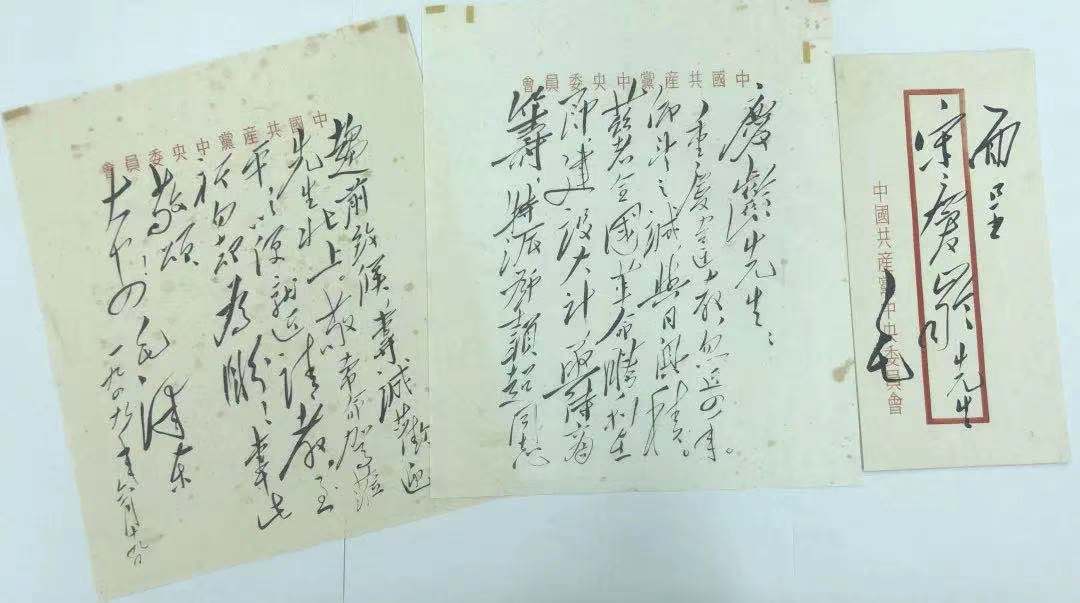 面呈
宋慶齡先生
毛
中國共產黨中央委員會
中國共產黨中央委員會
慶齡先生：
重慶違教，忽近四年。
仰望之誠，與日俱積。
茲者全國革命勝利在
即，建設大計，亟待商
籌，特派鄧穎超同志
中國共產黨中央委員會
趨前致候，專誠歡迎
先生北上。敬希命駕蒞
平，以便就近請教，至
祈勿却為盼！專此
敬頌
大安！毛澤東
一九四九年六月十九日